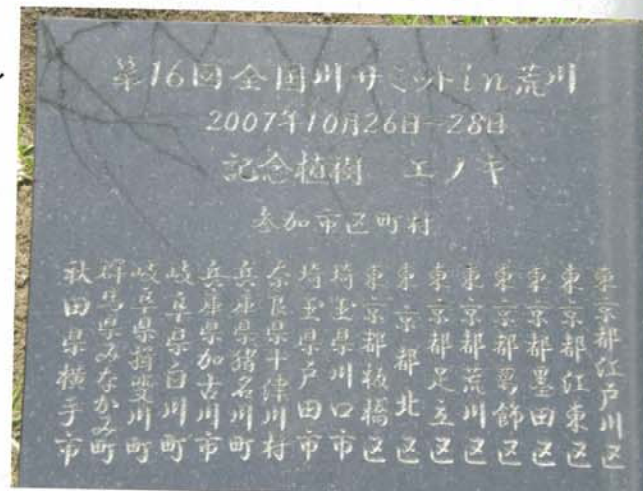 第16回全国川サミットin荒川
2007年10月26日-28日
記念植樹 エノキ
参加市区町村
東京都江戸川区
東京都江東区
東京都墨田区
東京都葛飾区
東京都荒川区
東京都足立区
東京都北区
東京都板橋区
埼玉県川口市
埼玉県戸田市
奈良県十津川村
兵庫県猪名川町
兵庫県加古川市
岐阜県白川町
岐阜県揖斐川町
群馬県みなかみ町
秋田県横手市